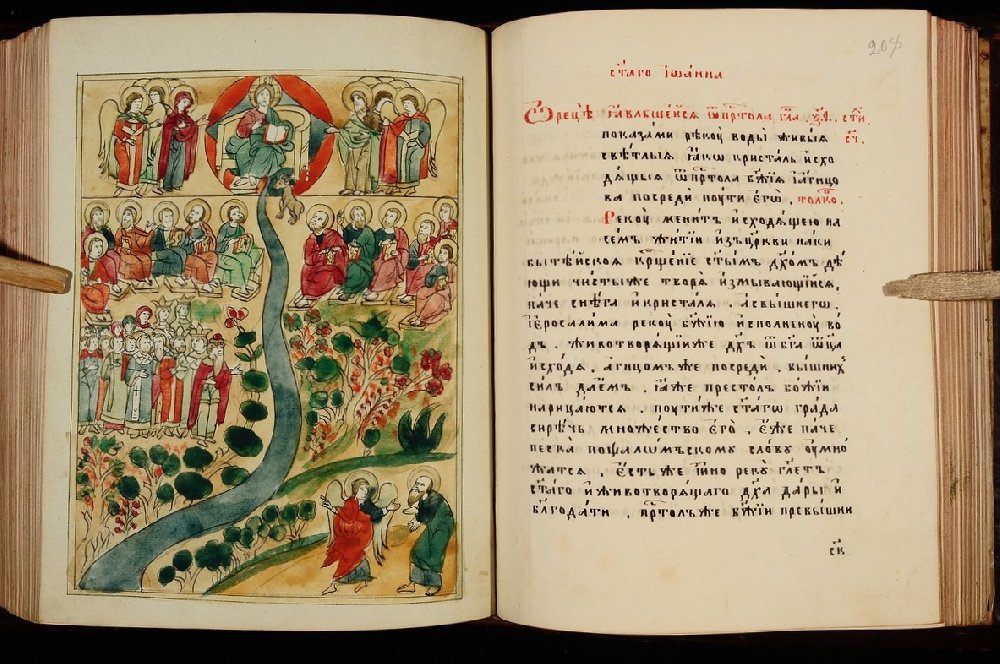 205
ст҃аго їѡанна
Ѡ рецѣ ꙗ҆вльшейсѧ ѿ прⷭ҇тола гла҃
показами рѣкоу̀ воды живыѧ
свѣтлыѧ ꙗкѡ кристаль и҆схо
дѧщыѧ ѿ прⷭ҇тола бж҃їѧ и҆ агнцо
ва посреди поути є҆гѡ̀, толко.
Рекоу̀ менитъ и҆сходѧщею на
семъ житїи и҆зъ цр҃кви паки
бытейскоѧ кр҃щенїе ст҃ымъ дх҃омъ дѣ
ющи чисты же творѧ и҆змывающїйсѧ,
паче снѣга и҆ кристалѧ. а свышнегѡ.
Їерⷭ҇осалима рекоу̀ бж҃їю и҆сполнєноу̀ во
дъ. животворѧщїи же дх҃ъ ѿ бг҃а ѿц҃а
и҆сходѧ, агнцомъ же посреди. вышних
силъ даемъ. ꙗ҆же престолъ божїи
нарицаютсѧ. поути же ст҃агѡ града
сирѣчь множество є҆гѡ̀. є҆же паче
песка по ѱаломъскому словоу̀ оумно
жатсѧ. Є҆сть же и҆ ино рекꙋ гл҃етъ
ст҃аго и҆ животворѧщаго дх҃а дары и҆
благодати. прⷭ҇толъ же бж҃їи превышнѝ